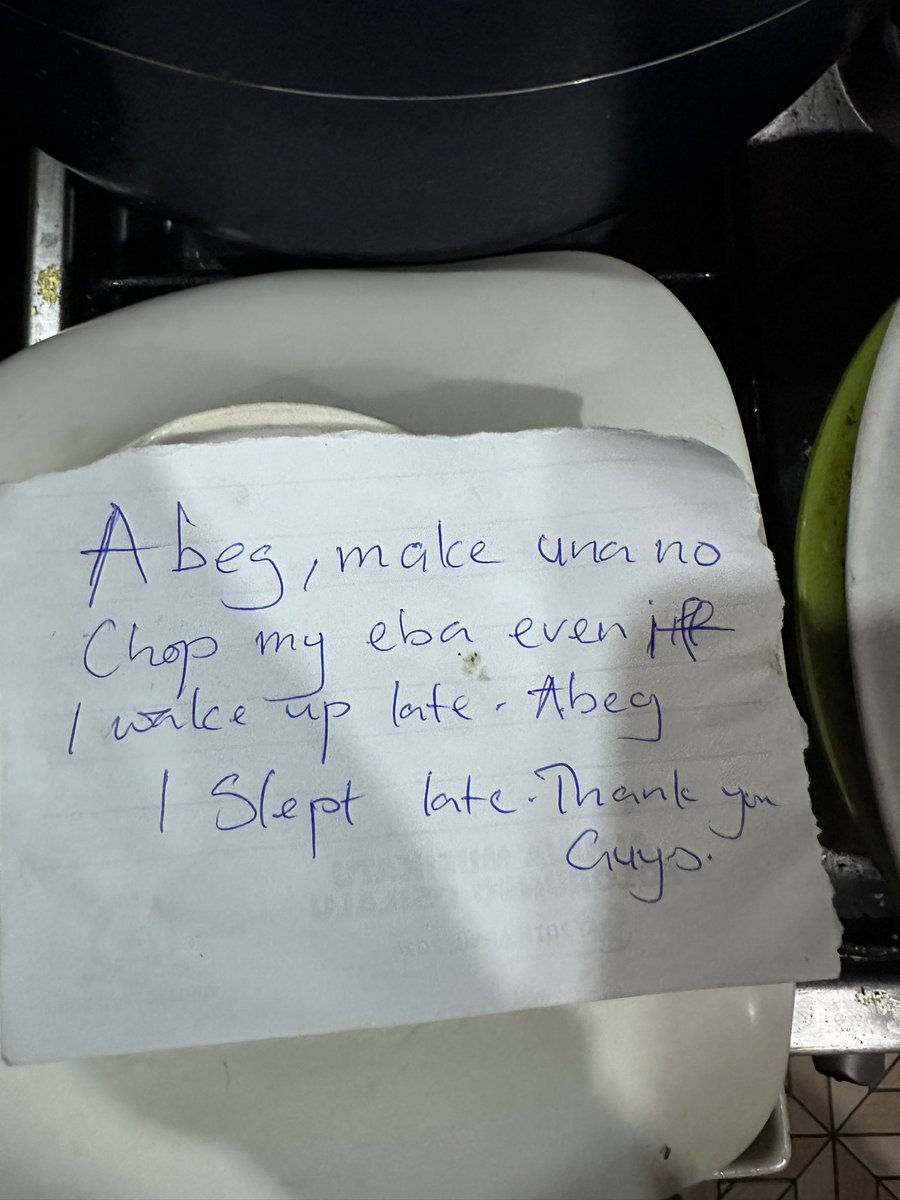 Abeg, make una no
Chop my eba even if
I wake up late. Abeg
I Slept late. Thank you
Guys.